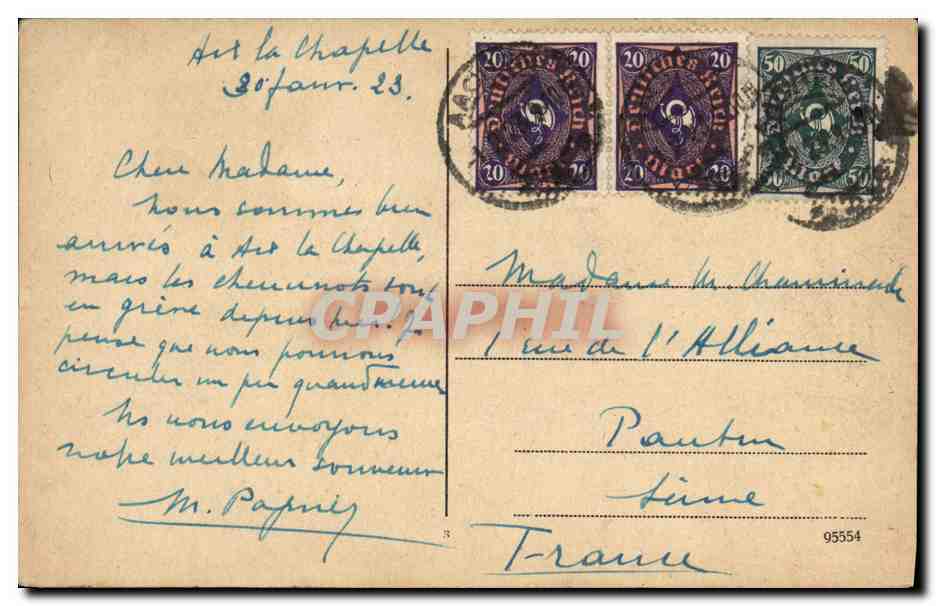 Aix la Chapelle
30 janv. 23.
Chère Madame,
Nous sommes bien
arrivés à Aix la Chapelle,
mais les cheminots sont
en grève depuis hier. Je
pense que nous pourrons
circuler un peu quand même
Ns vous envoyons
notre meilleur souvenir
M.
20 20
Deutsches Reich
Mark
20 20
20 20
Deutsches Reich
Mark
20 20
50 50
Deutsches Reich
Mark
50 50
Madame M. Chaminade
1 rue de l'Alliance
Pantin
Seine
France
CPAPHIL
3
95554